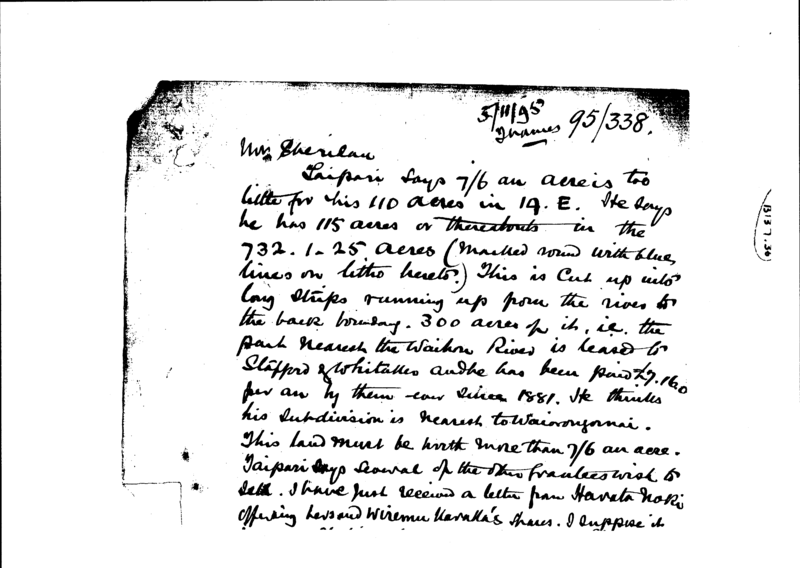 5/11/95
Thames
95/338.
Mr Sheridan
Taipari says 7/6 an acre is too
little for his 110 acres in 19. E. He says
he has 115 acres or thereabouts in the
732. 1. 25 acres (marked round with blue
lines on litho hereto.) This is cut up into
long strips running up from the river to
the back bounday. 300 acres of it, i.e. the
part nearest the Waihou River is leased to
Stafford & Whitaker and he has been paid
per an by them ever since 1881. He thinks
his subdivision is nearest to Waiorongomai.
This land must be worth more than 7/6 an acre.
Taipari says several of the other Grantees wish to
sell. I have just received a letter from Harata Noki
offering hers and Wiremu shares. I suppose it